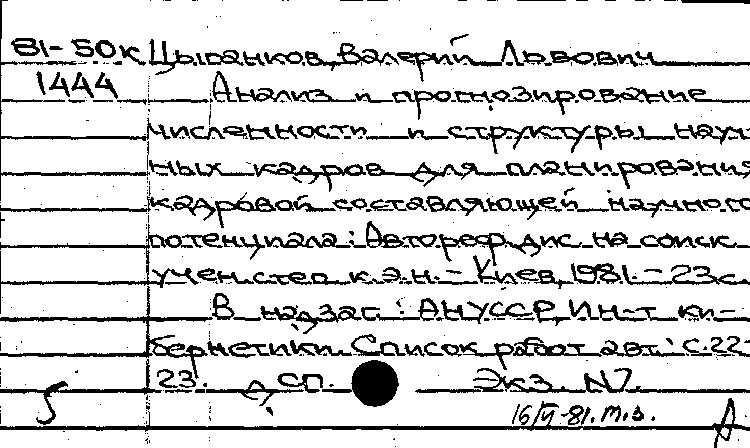 81-50к Цыбанков, Валерий Львович
1444 Анализ и прогнозирование
численности и структуры науч-
ных кадров для планирования
кадровой составляющей научного
потенциала: Автореф. дис. на соиск.
учен. степ. к.э.н. - Киев, 1981. - 23 с.
В надзаг.: АН УССР, Ин-т ки-
бернетики. Список работ авт.: с. 22-
23. сп. Экз. N7.
16/VI-81. т.з.